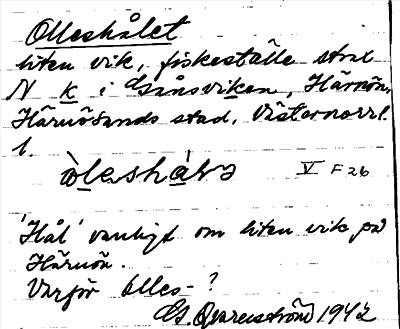 Olleshålet
liten vik, fiskeställe strax
N k i Gånsviken, Härnön,
Härnösands stad, Västernorrl.
l.
òleshàlə V F26
'Hål' vanligt om liten vik på
Härnön.
Varför Olles-?
G. Qvarnström 1942